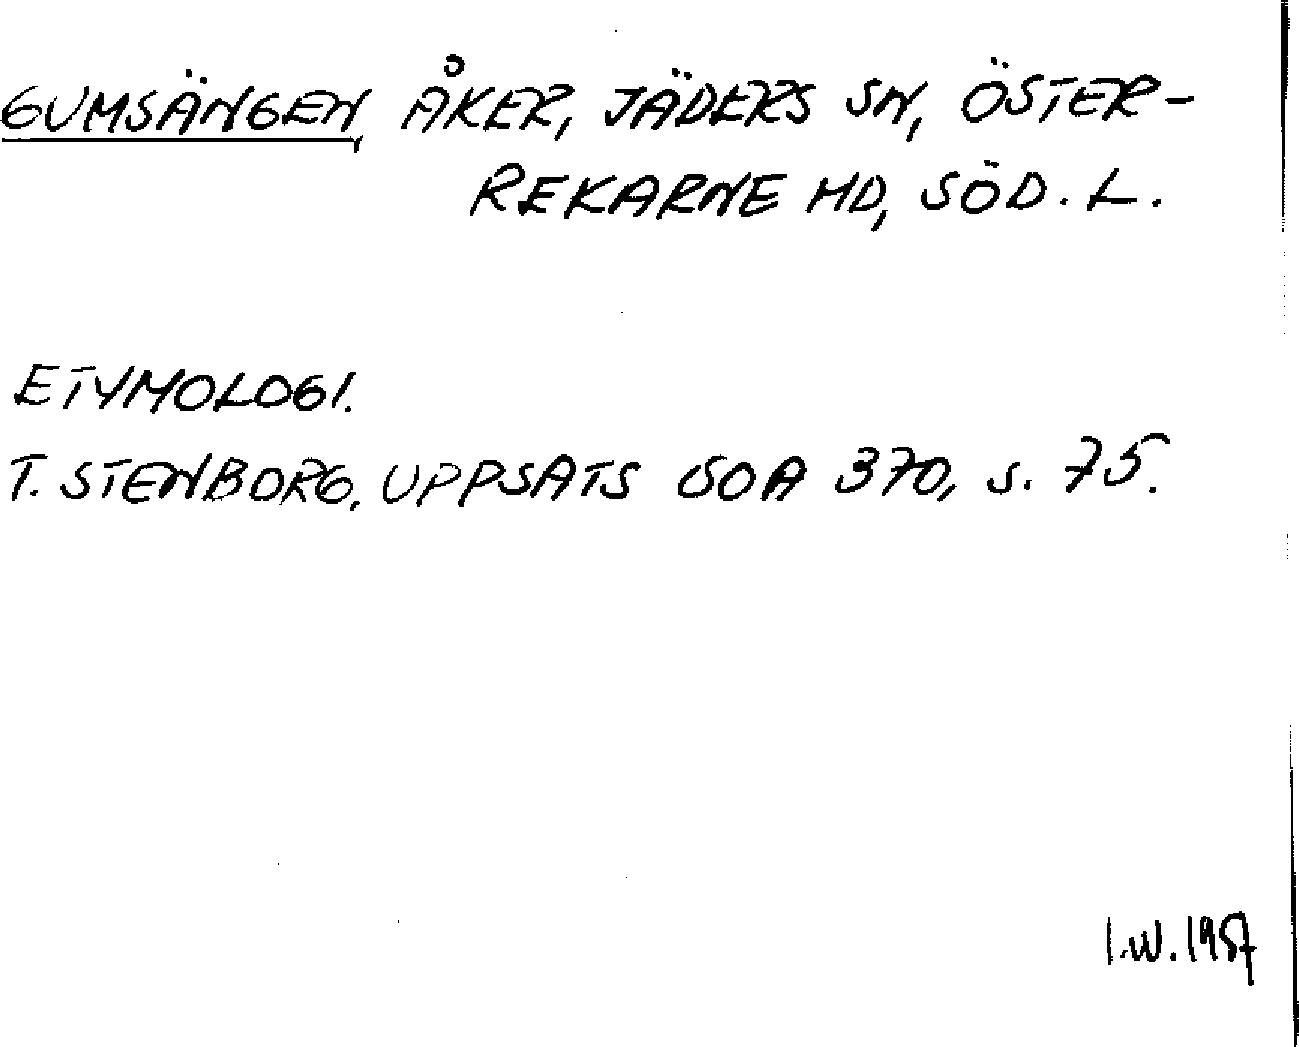 GUMSÄNGEN, ÅKER, JÄDERS SN, ÖSTER-
REKARNE HD, SÖD. L.
ETYMOLOGI.
T. STENBORG, UPPSATS SOA 370, s. 75.
I.W. 1957